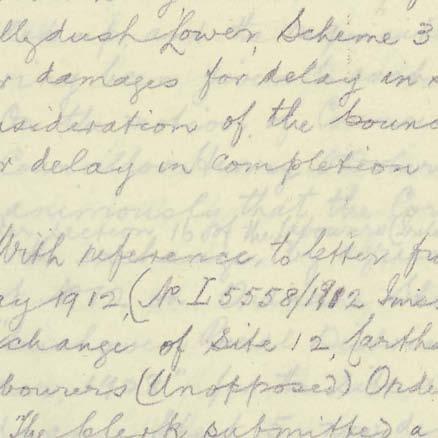 llydush Lower, Scheme 3
r damages for delay in
nsideration of the bounc
r delay in completion
With reference to letter fr
ay 1912, (No. I. 5558/1912 Misc
xchange of Site 12, Cartha
bourers (Unopposed) Orde
The Clerk submitted a